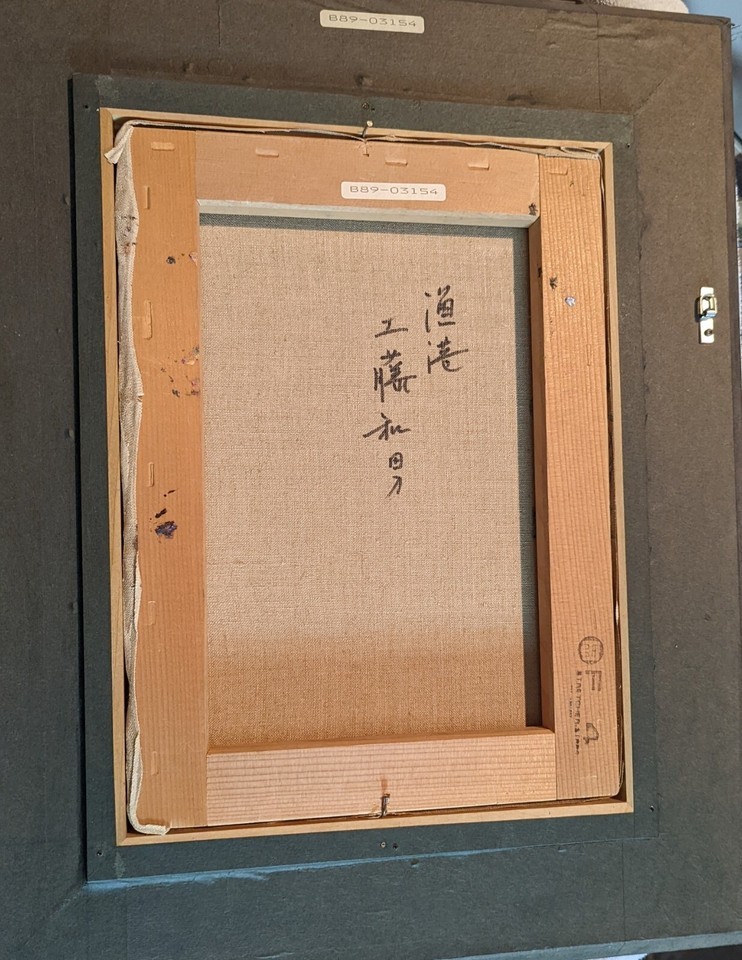 B89-03154
B89-03154
漁港
工藤和男
F 4